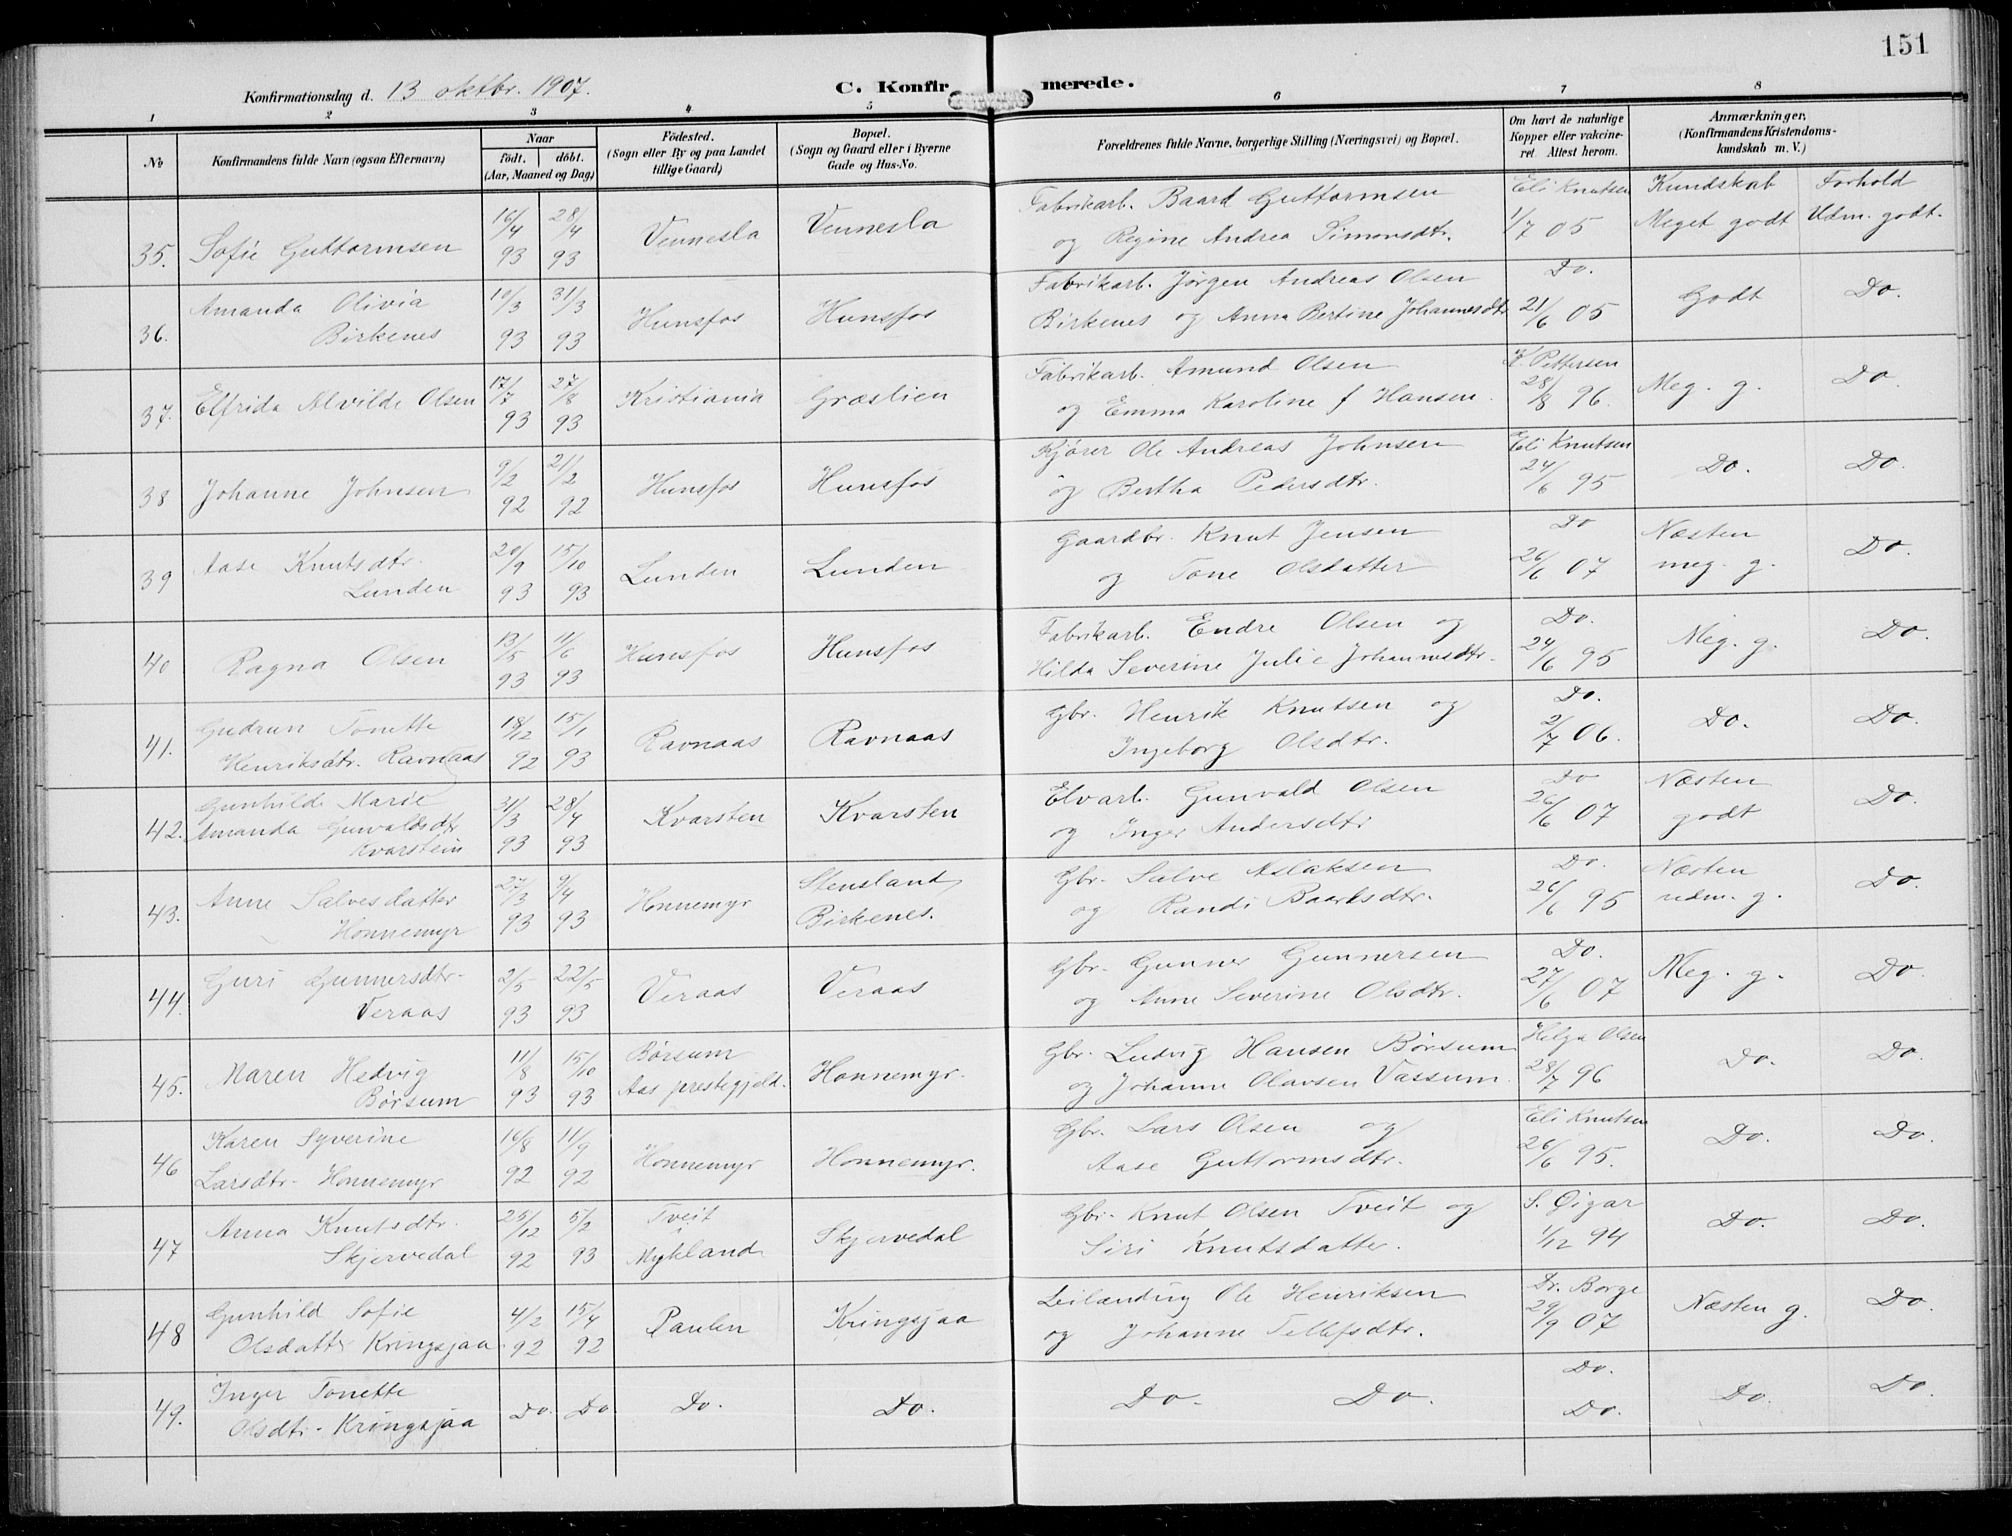 151
Konfirmationsdag d. 13 oktbr. 1907.
C. Konfirmerede.
1 2 3 4 5 6 7 8
No
Konfirmandens fulde Navn (ogsaa Efternavn)
Naar
født. døbt.
(Aar, Maaned og Dag)
Födested.
(Sogn eller By og paa Landet
tillige Gaard)
Bopæl.
(Sogn og Gaard eller i Byerne
Gade og Hus-No.
Forældrenes fulde Navne, borgerlige Stilling (Næringsvei) og Bopæl.
Om havt de naturlige
Kopper eller vakcine-
ret. Attest herom.
Anmærkninger,
(Konfirmandens Kristendoms-
kundskab m. V.)
Kundskab Forhold
35. Sofie Guttormsen 16/4 93 28/4 93 Vennesla Vennesla
Fabrikarb. Baard Guttormsen
og Regine Andrea Simonsdtr.
Eli Knutsen
1/7 05 Meget godt Udm. godt.
36. Amanda Olivia
Birkenes
10/3 93 31/3 93 Hunsfos Hunsfos
Fabrikarb. Jørgen Andreas Olsen
Birkenes og Anna Bertine Johannesdtr
Do.
21/6 05 Godt Do.
37. Elfrida Alvilde Olsen 17/7 93 27/8 93 Kristiania Græslien
Fabrikarb. Amund Olsen
og Emma Karoline f Hansen.
K. Pettersen
28/8 96. Meg. g. Do.
38 Johanne Johnsen 9/2 92 21/2 92 Hunsfos Hunsfos
Kjører Ole Andreas Johnsen
og Bertha Pedersdtr.
Eli Knutsen
24/6 95 Do. Do.
39 Aase Knutsdtr.
Lunden
20/9 93 15/10 93 Lunden Lunden
Gaardbr. Knut Jensen
og Tone Olsdatter
Do
26/6 07 Næsten
meg. g. Do.
40 Ragna Olsen 13/5 93 11/6 93 Hunsfos Hunsfos
Fabrikarb. Endre Olsen og
Hilda Severine Julie Johannesdtr.
Do.
24/6 95 Meg. g. Do.
41. Gudrun Tonette
Henriksdtr. Ravnaas
18/12 92 15/1 93 Ravnaas Ravnaas
Gbr. Henrik Knutsen og
Ingeborg Olsdtr.
Do.
2/7 06. Do. Do.
42. Gunhilde Marie
Amanda Gunvaldsdtr
Kvarstein
31/3 93 28/4 93 Kvarsten Kvarsten
Elvarb. Gunvald Olsen
og Inger Andersdtr
Do
26/6 07 Næsten
godt Do.
43. Anne Salvesdatter
Honnemyr
27/3 93 9/4 93 Honnemyr Stensland
Birkenes.
Gbr. Salve Aslaksen
og Randi Baardsdtr.
Do.
26/6 95 Næsten
udm. g. Do.
44. Guri Gunnersdtr.
Veraas
2/5 93 22/5 93 Veraas Veraas
Gbr. Gunner Gunnersen
og Anne Severine Olsdtr.
Do.
27/6 07 Meg. g. Do.
45. Maren Hedvig
Børsum
11/8 93 15/10 93 Børsum
Aas prestegjeld. Honnemyr.
Gbr. Ludvig Hansen Børsum
og Johanne Olavsen Vassum.
Helga Olsen
28/7 96 Do. Do.
46 Karen Syverine
Larsdtr. Honnemyr
16/8 92 11/9 92 Honnemyr Honnemyr.
Gbr. Lars Olsen og
Aase Guttormsdtr.
Eli Knutsen
26/6 95. Do. Do.
47 Anna Knutsdtr.
Skjervedal
25/12 92 5/2 93 Tveit
i
Mykland Skjervedal
Gbr. Knut Olsen Tveit og
Siri Knutsdatter.
S. Øigar
1/12 94 Do. Do.
48 Gunhild Sofie
Olsdatter Kringsjaa
4/2 92 15/4 92 Paulen Kringsjaa
Leilænding Ole Henriksen
og Johanne Tellefsdtr.
Dr. Borge
29/9 07 Næsten g. Do.
49. Inger Tonette
Olsdtr. Kringsjaa
Do. Do Do. Do.
Do. Do.
Do.
Do. Do. Do.